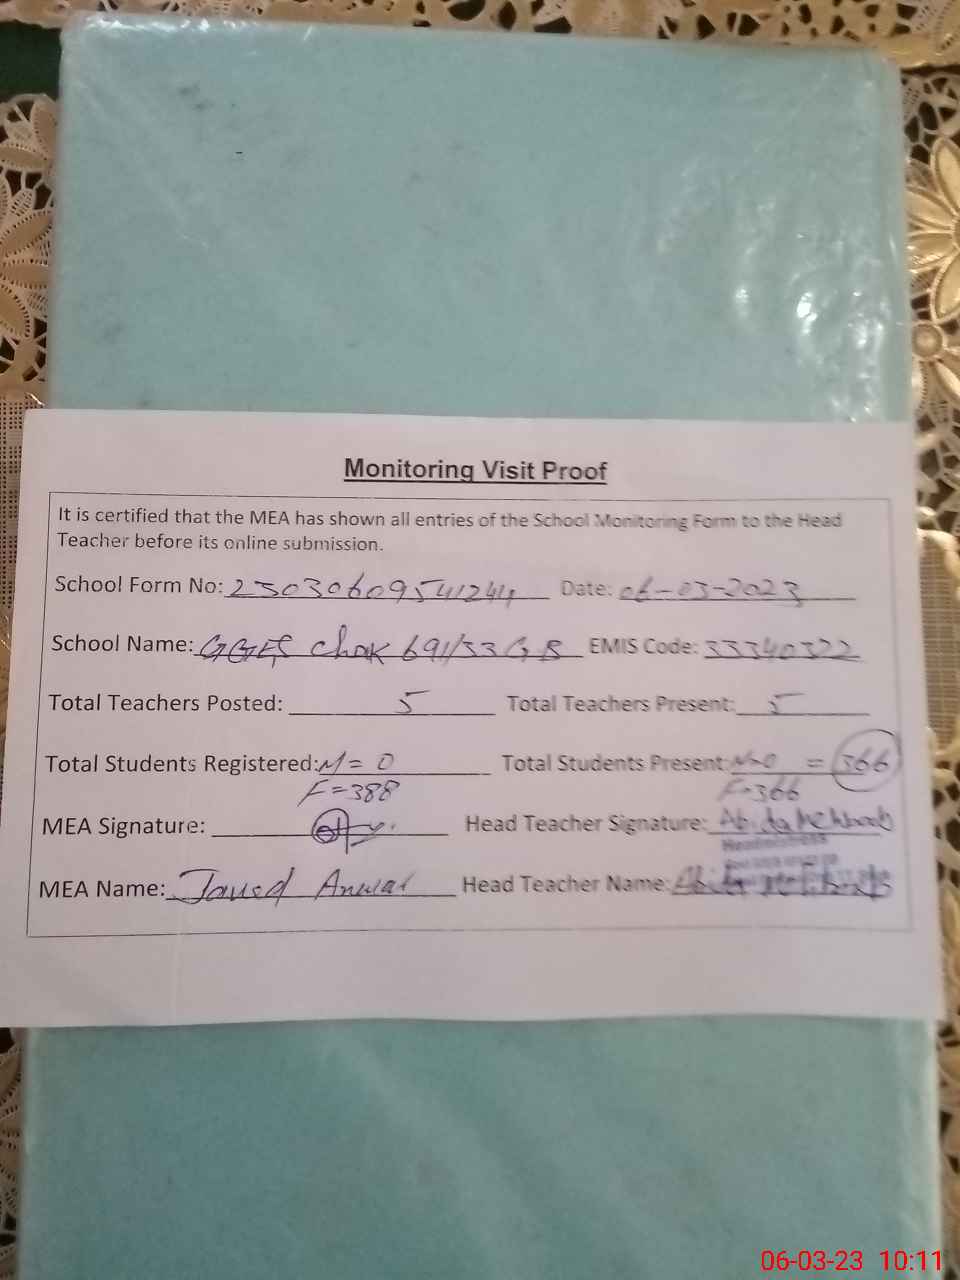 Monitoring Visit Proof
It is certified that the MEA has shown all entries of the School Monitoring Form to the Head
Teacher before its online submission.
School Form No: 23030609541244 Date: 06-03-2023
School Name: GGES Chak 691/33 GB EMIS Code: 33340322
Total Teachers Posted: 5 Total Teachers Present: 5
Total Students Registered: M = 0 Total Students Present: M=0 = 366
F = 388 F=366
MEA Signature: Head Teacher Signature: Abida Mehboob
Headmistress
MEA Name: Javed Anwar Head Teacher Name: Abida Mehboob
06-03-23 10:11